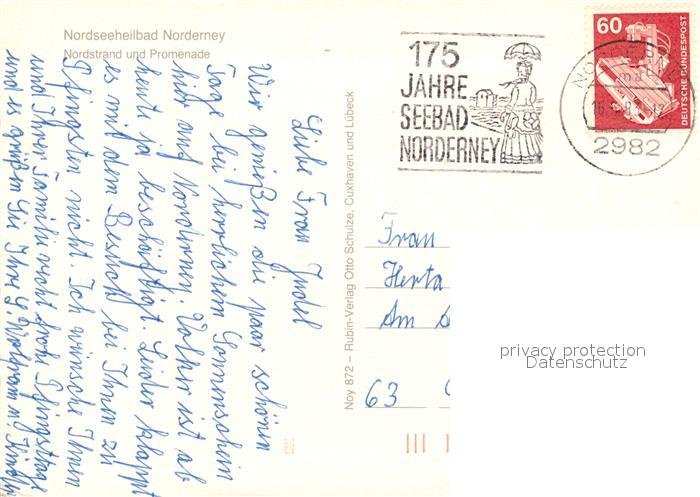 Nordseeheilbad Norderney
Nordstrand und Promenade
175
JAHRE
SEEBAD
NORDERNEY
60
DEUTSCHE BUNDESPOST
2982
Liebe Frau Judel
Wir genießen die paar schönen
Tage bei herrlichem Sonnenschein
hier auf Norderney. Volker ist ab
heute ja beschäftigt. Leider klappt
es mit dem Besuch bei Ihnen zu
Pfingsten nicht. Ich wünsche Ihnen
und Ihrer Familie recht frohe Pfingsttage
und es grüßen Sie Ihre G. Wolfram u. Kinder
Noy 872 – Rubin-Verlag Otto Schulze, Cuxhaven und Lübeck
Frau
Herta
Am
63
privacy protection
Datenschutz